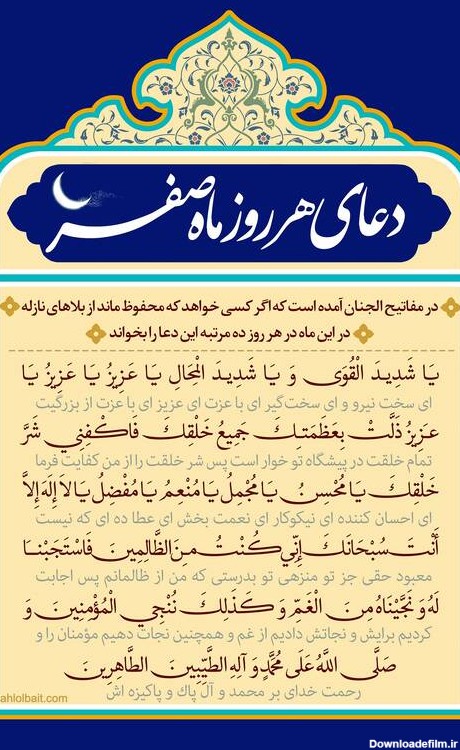 دعای هر روز ماه صفر
در مفاتیح الجنان آمده است که اگر کسی خواهد که محفوظ ماند از بلاهای نازله
در این ماه در هر روز ده مرتبه این دعا را بخواند
يَا شَدِيدَ الْقُوَى وَ يَا شَدِيدَ الْمِحَالِ يَا عَزِيزُ يَا عَزِيزُ يَا
ای سخت نیرو و ای سخت‌گیر ای با عزت ای عزیز ای با عزت از بزرگیت
عَزِيزُ ذَلَّتْ بِعَظَمَتِكَ جَمِيعُ خَلْقِكَ فَاكْفِنِي شَرَّ
تمام خلقت در پیشگاه تو خوار است پس شر خلقت را از من کفایت فرما
خَلْقِكَ يَا مُحْسِنُ يَا مُجْمِلُ يَا مُنْعِمُ يَا مُفْضِلُ يَا لا إِلَهَ إِلاَّ
ای احسان کننده ای نیکوکار ای نعمت بخش ای عطا ده ای که نیست
أَنْتَ سُبْحَانَكَ إِنِّي كُنْتُ مِنَ الظَّالِمِينَ فَاسْتَجَبْنَا
معبود حقی جز تو منزهی تو بدرستی که من از ظالمانم پس اجابت
لَهُ وَ نَجَّيْنَاهُ مِنَ الْغَمِّ وَ كَذَلِكَ نُنْجِي الْمُؤْمِنِينَ وَ
کردیم برایش و نجاتش دادیم از غم و همچنین نجات دهیم مؤمنان را و
صَلَّى اللَّهُ عَلَى مُحَمَّدٍ وَ آلِهِ الطَّيِّبِينَ الطَّاهِرِينَ
رحمت خدای بر محمد و آل پاك و پاکیزه اش
ahlolbait.com
Downloadefilm.ir